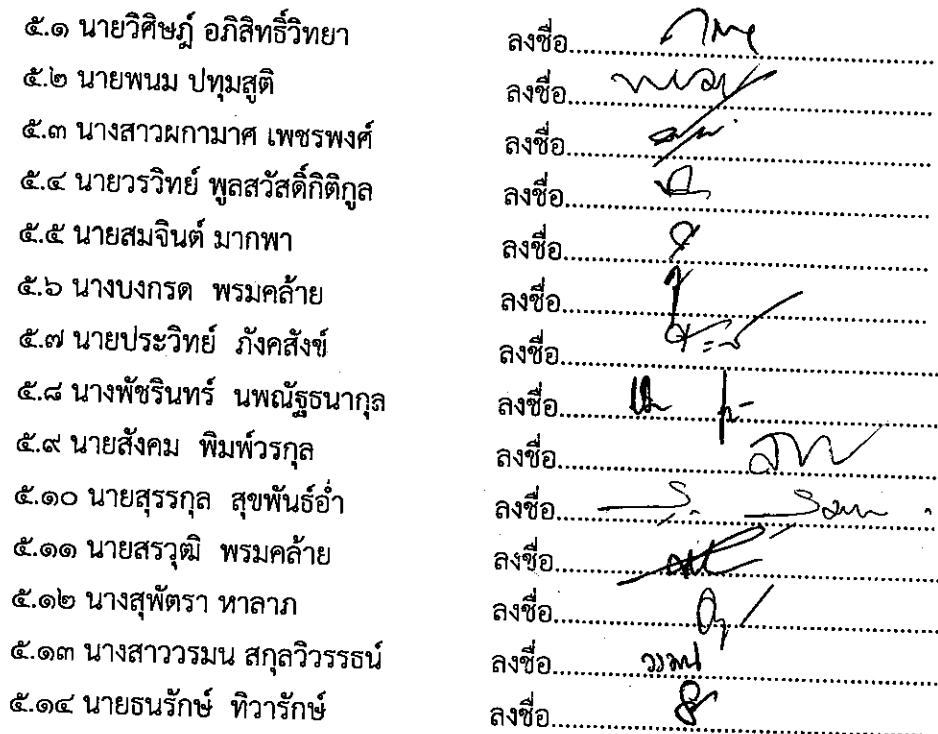 ๕.๑ นายวิศิษฎ์ อภิสิทธิ์วิทยา ลงชื่อ....................
๕.๒ นายพนม ปทุมสูติ ลงชื่อ....................
๕.๓ นางสาวผกามาศ เพชรพงศ์ ลงชื่อ....................
๕.๔ นายวรวิทย์ พูลสวัสดิ์กิติกูล ลงชื่อ....................
๕.๕ นายสมจินต์ มากพา ลงชื่อ....................
๕.๖ นางบงกรด พรมคล้าย ลงชื่อ....................
๕.๗ นายประวิทย์ ภังคสังข์ ลงชื่อ....................
๕.๘ นางพัชรินทร์ นพณัฐธนากุล ลงชื่อ....................
๕.๙ นายสังคม พิมพ์วรกุล ลงชื่อ....................
๕.๑๐ นายสุรรกุล สุขพันธ์อ่ำ ลงชื่อ....................
๕.๑๑ นายสรวุฒิ พรมคล้าย ลงชื่อ....................
๕.๑๒ นางสุพัตรา หาลาภ ลงชื่อ....................
๕.๑๓ นางสาววรมน สกุลวิวรรธน์ ลงชื่อ....................วรมน
๕.๑๔ นายธนรักษ์ ทิวารักษ์ ลงชื่อ....................